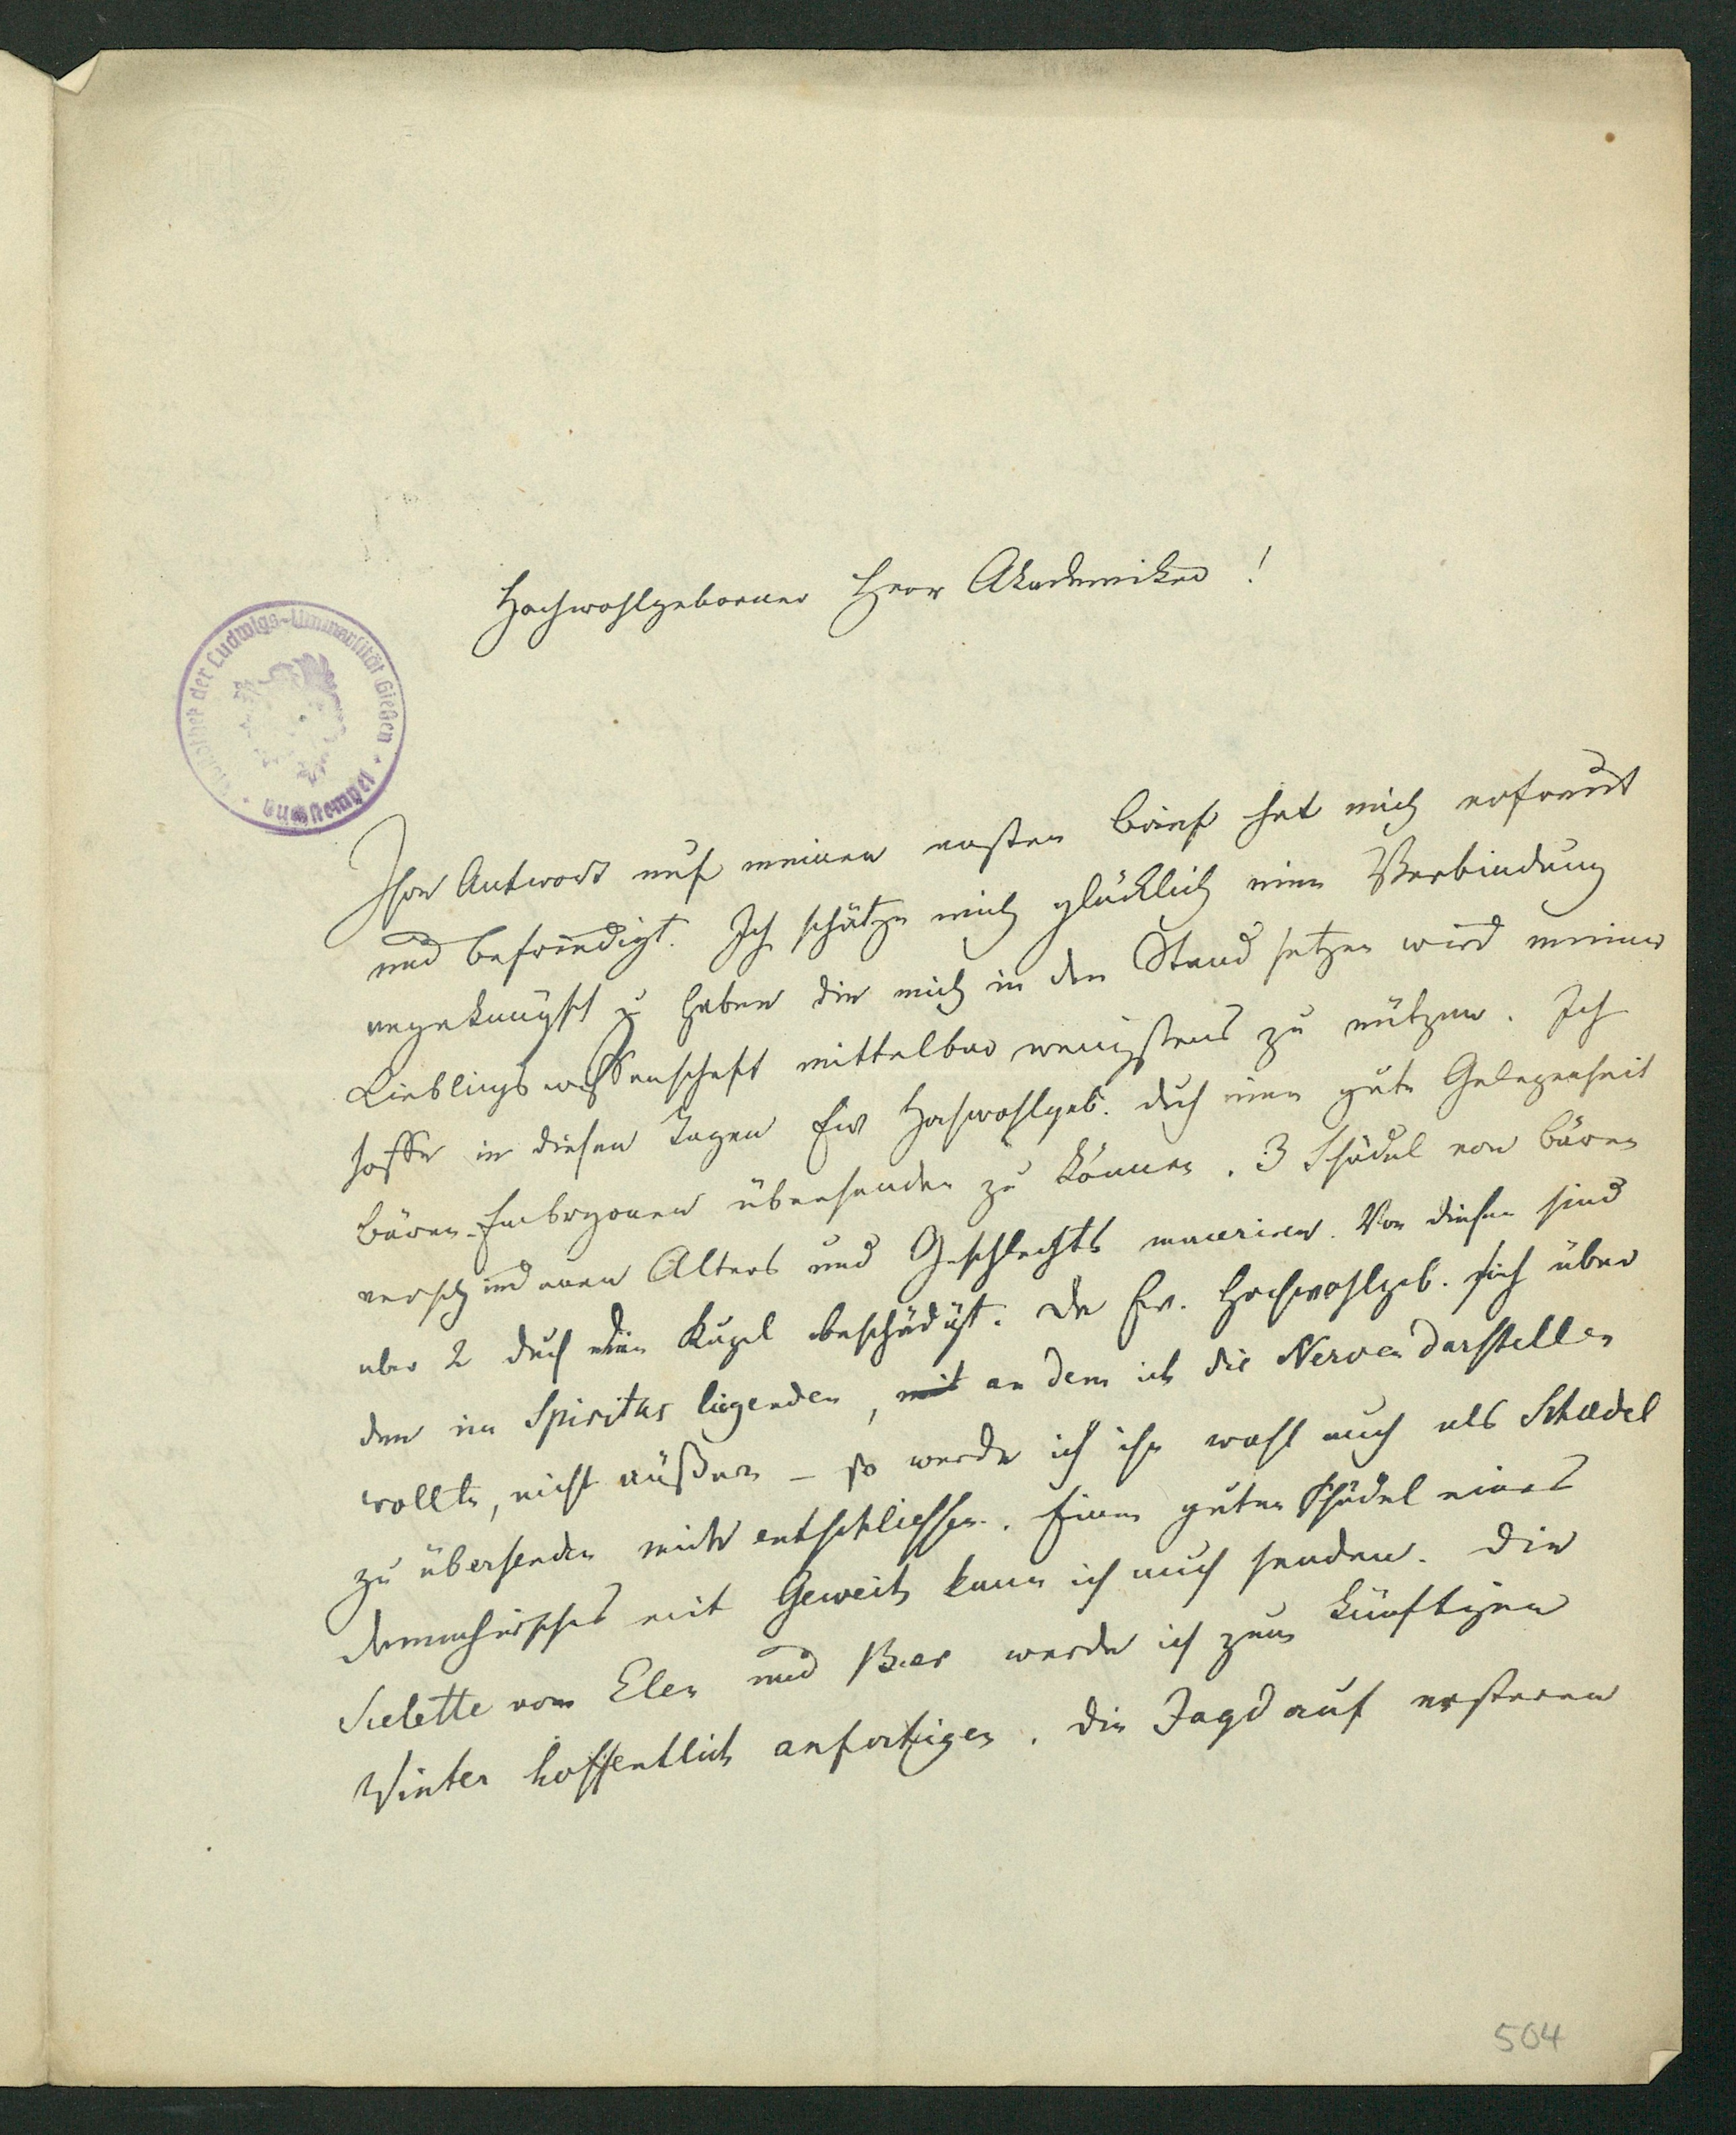 Hochwohlgeborner Herr Akademiker!
Bibliothek der Ludwigs-Universität Gießen
Ihre Antwort auf meinen ersten Brief hat mich erfreut
und befriedigt. Ich schätze mich glücklich eine Verbindung
angeknüpft zu haben die mich in den Stand setzen wird meiner
Lieblingswissenschaft mittelbar wenigstens zu nützen. Ich
hoffe in diesen Tagen Ew Hochwohlgeb. durch eine gute Gelegenheit
Bären-Embryonen übersenden zu können. 3 Schädel von Bären
verschiedenen Alters und Geschlechts macerieren. Von diesen sind
aber 2 durch die Kugel beschädigt. Da Ew. Hochwohlgeb. sich über
den im Spiritus liegenden, mit an dem ich die Nerven darstellen
wollte, nicht äußern – so werde ich ihn wohl auch als Schædel
zu übersenden mich entschliessen. Einen guten Schädel eines
mit Geweih kann ich auch senden. Die
Scelette vom Elen und Bær werde ich zum künftigen
Winter hoffentlich anfertigen. Die Jagd auf ersteren
504